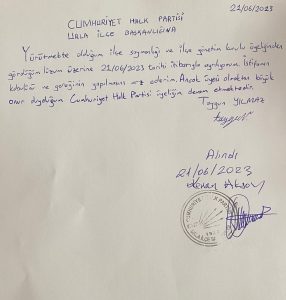 21/06/2023
CUMHURİYET HALK PARTİSİ
URLA İLÇE BAŞKANLIĞINA
Yürütmekte olduğum ilçe saymanlığı ve ilçe yönetim kurulu üyeliğinden
gördüğüm lüzum üzerine 21/06/2023 tarihi itibarıyla ayrılıyorum. İstifamın
kabulünü ve gereğinin yapılmasını arz ederim. Ancak üyesi olmaktan büyük
onur duyduğum Cumhuriyet Halk Partisi üyeliğim devam etmektedir.
Taygun YILMAZ
Alındı
21/06/2023
Kenan
CUMHURİYET HALK PARTİSİ